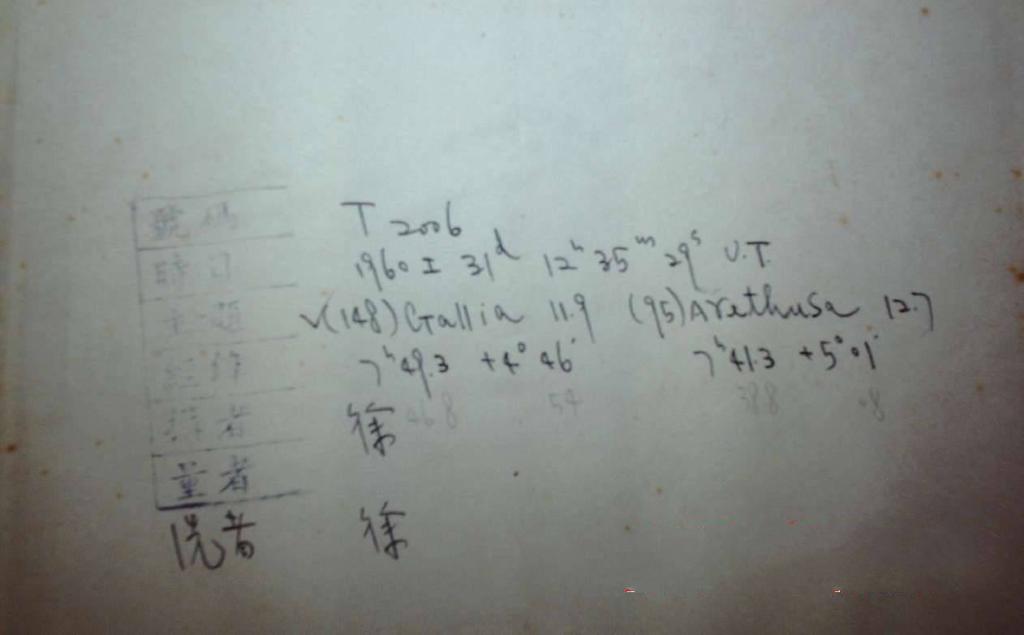 號碼 T 2006
時日 1960 I 31ᵈ 12ʰ 35ᵐ 29ˢ U.T.
主題 √(148) Gallia 11.9 (95) Arethusa 12.7
經緯 7ʰ 49.3 +4° 46' 7ʰ 41.3 +5° 01'
46.8 54 38.8 08
者 徐
量者
洗者 徐